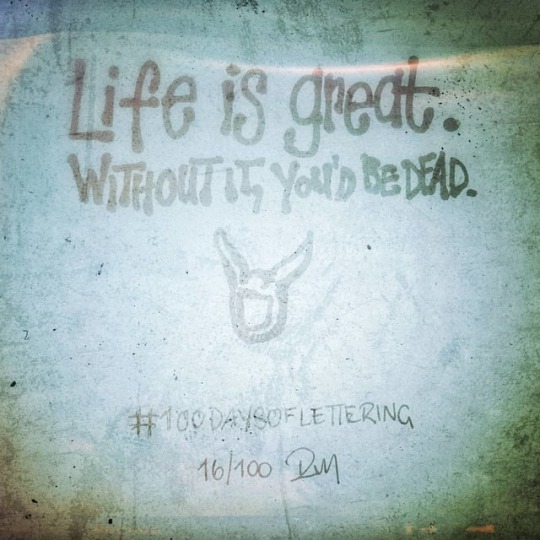 Life is great.
WITHOUT IT, YOU'D BE DEAD.
#100DAYSOFLETTERING
16/100